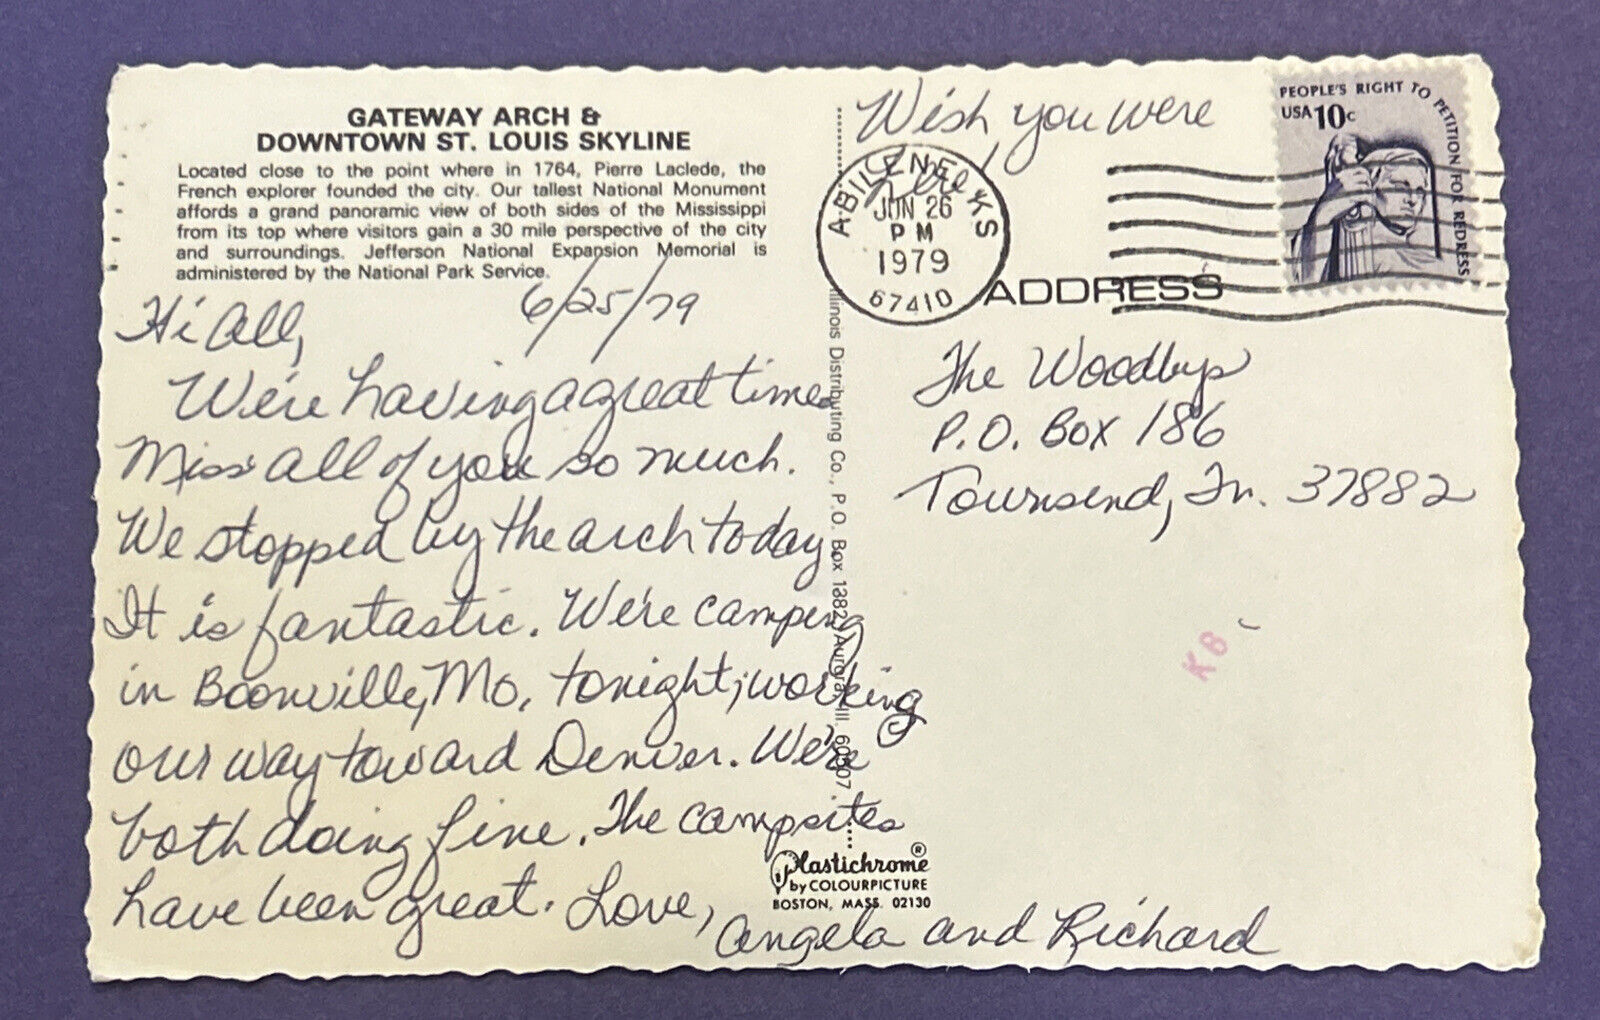 GATEWAY ARCH &
DOWNTOWN ST. LOUIS SKYLINE
Located close to the point where in 1764, Pierre Laclede, the
French explorer founded the city. Our tallest National Monument
affords a grand panoramic view of both sides of the Mississippi
from its top where visitors gain a 30 mile perspective of the city
and surroundings. Jefferson National Expansion Memorial is
administered by the National Park Service.
6/25/79
Hi All,
We're having a great time.
Miss all of you so much.
We stopped by the arch today.
It is fantastic. We're camping
in Boonville, Mo. tonight; working
our way toward Denver. We're
both doing fine. The campsites
have been great. Love,
Angela and Richard
Illinois Distributing Co., P.O. Box 1382, Aurora, Ill. 60507
Plastichrome®
by COLOURPICTURE
BOSTON, MASS. 02130
Wish you were
here!
ABILENE, KS
JUN 26
PM
1979
67410
PEOPLE'S RIGHT TO PETITION FOR REDRESS
USA 10c
ADDRESS
The Woodbys
P.O. Box 186
Townsend, Tn. 37882